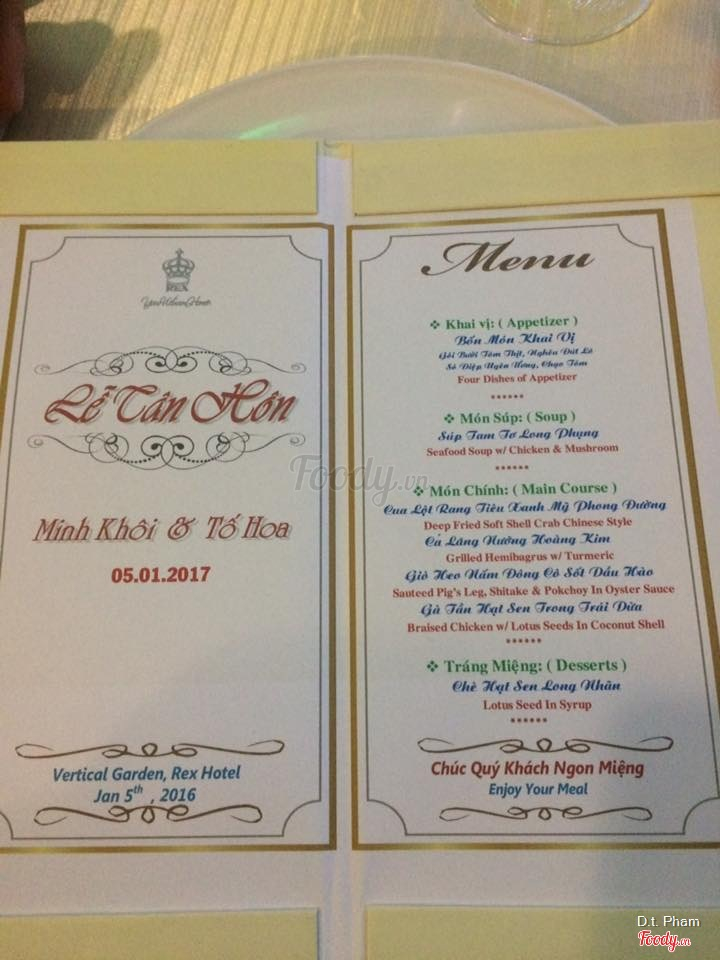 REX
Lễ Tân Hôn
Minh Khôi & Tố Hoa
05.01.2017
Vertical Garden, Rex Hotel
Jan 5th , 2016
Menu
❖ Khai vị: ( Appetizer )
Bốn Món Khai Vị
Gỏi Bưởi Tôm Thịt, Nghêu Đút Lò
Sò Điệp Uyên Ương, Chạo Tôm
Four Dishes of Appetizer
******
❖ Món Súp: ( Soup )
Súp Tam Tơ Long Phụng
Seafood Soup w/ Chicken & Mushroom
******
❖ Món Chính: ( Main Course )
Cua Lột Rang Tiêu Xanh Mỹ Phong Đường
Deep Fried Soft Shell Crab Chinese Style
Cá Lăng Nướng Hoàng Kim
Grilled Hemibagrus w/ Turmeric
Giò Heo Nấm Đông Cô Sốt Dầu Hào
Sauteed Pig's Leg, Shitake & Pokchoy In Oyster Sauce
Gà Tần Hạt Sen Trong Trái Dừa
Braised Chicken w/ Lotus Seeds In Coconut Shell
******
❖ Tráng Miệng: ( Desserts )
Chè Hạt Sen Long Nhãn
Lotus Seed In Syrup
******
Chúc Quý Khách Ngon Miệng
Enjoy Your Meal
Foody.vn
D.t. Pham
Foody.vn